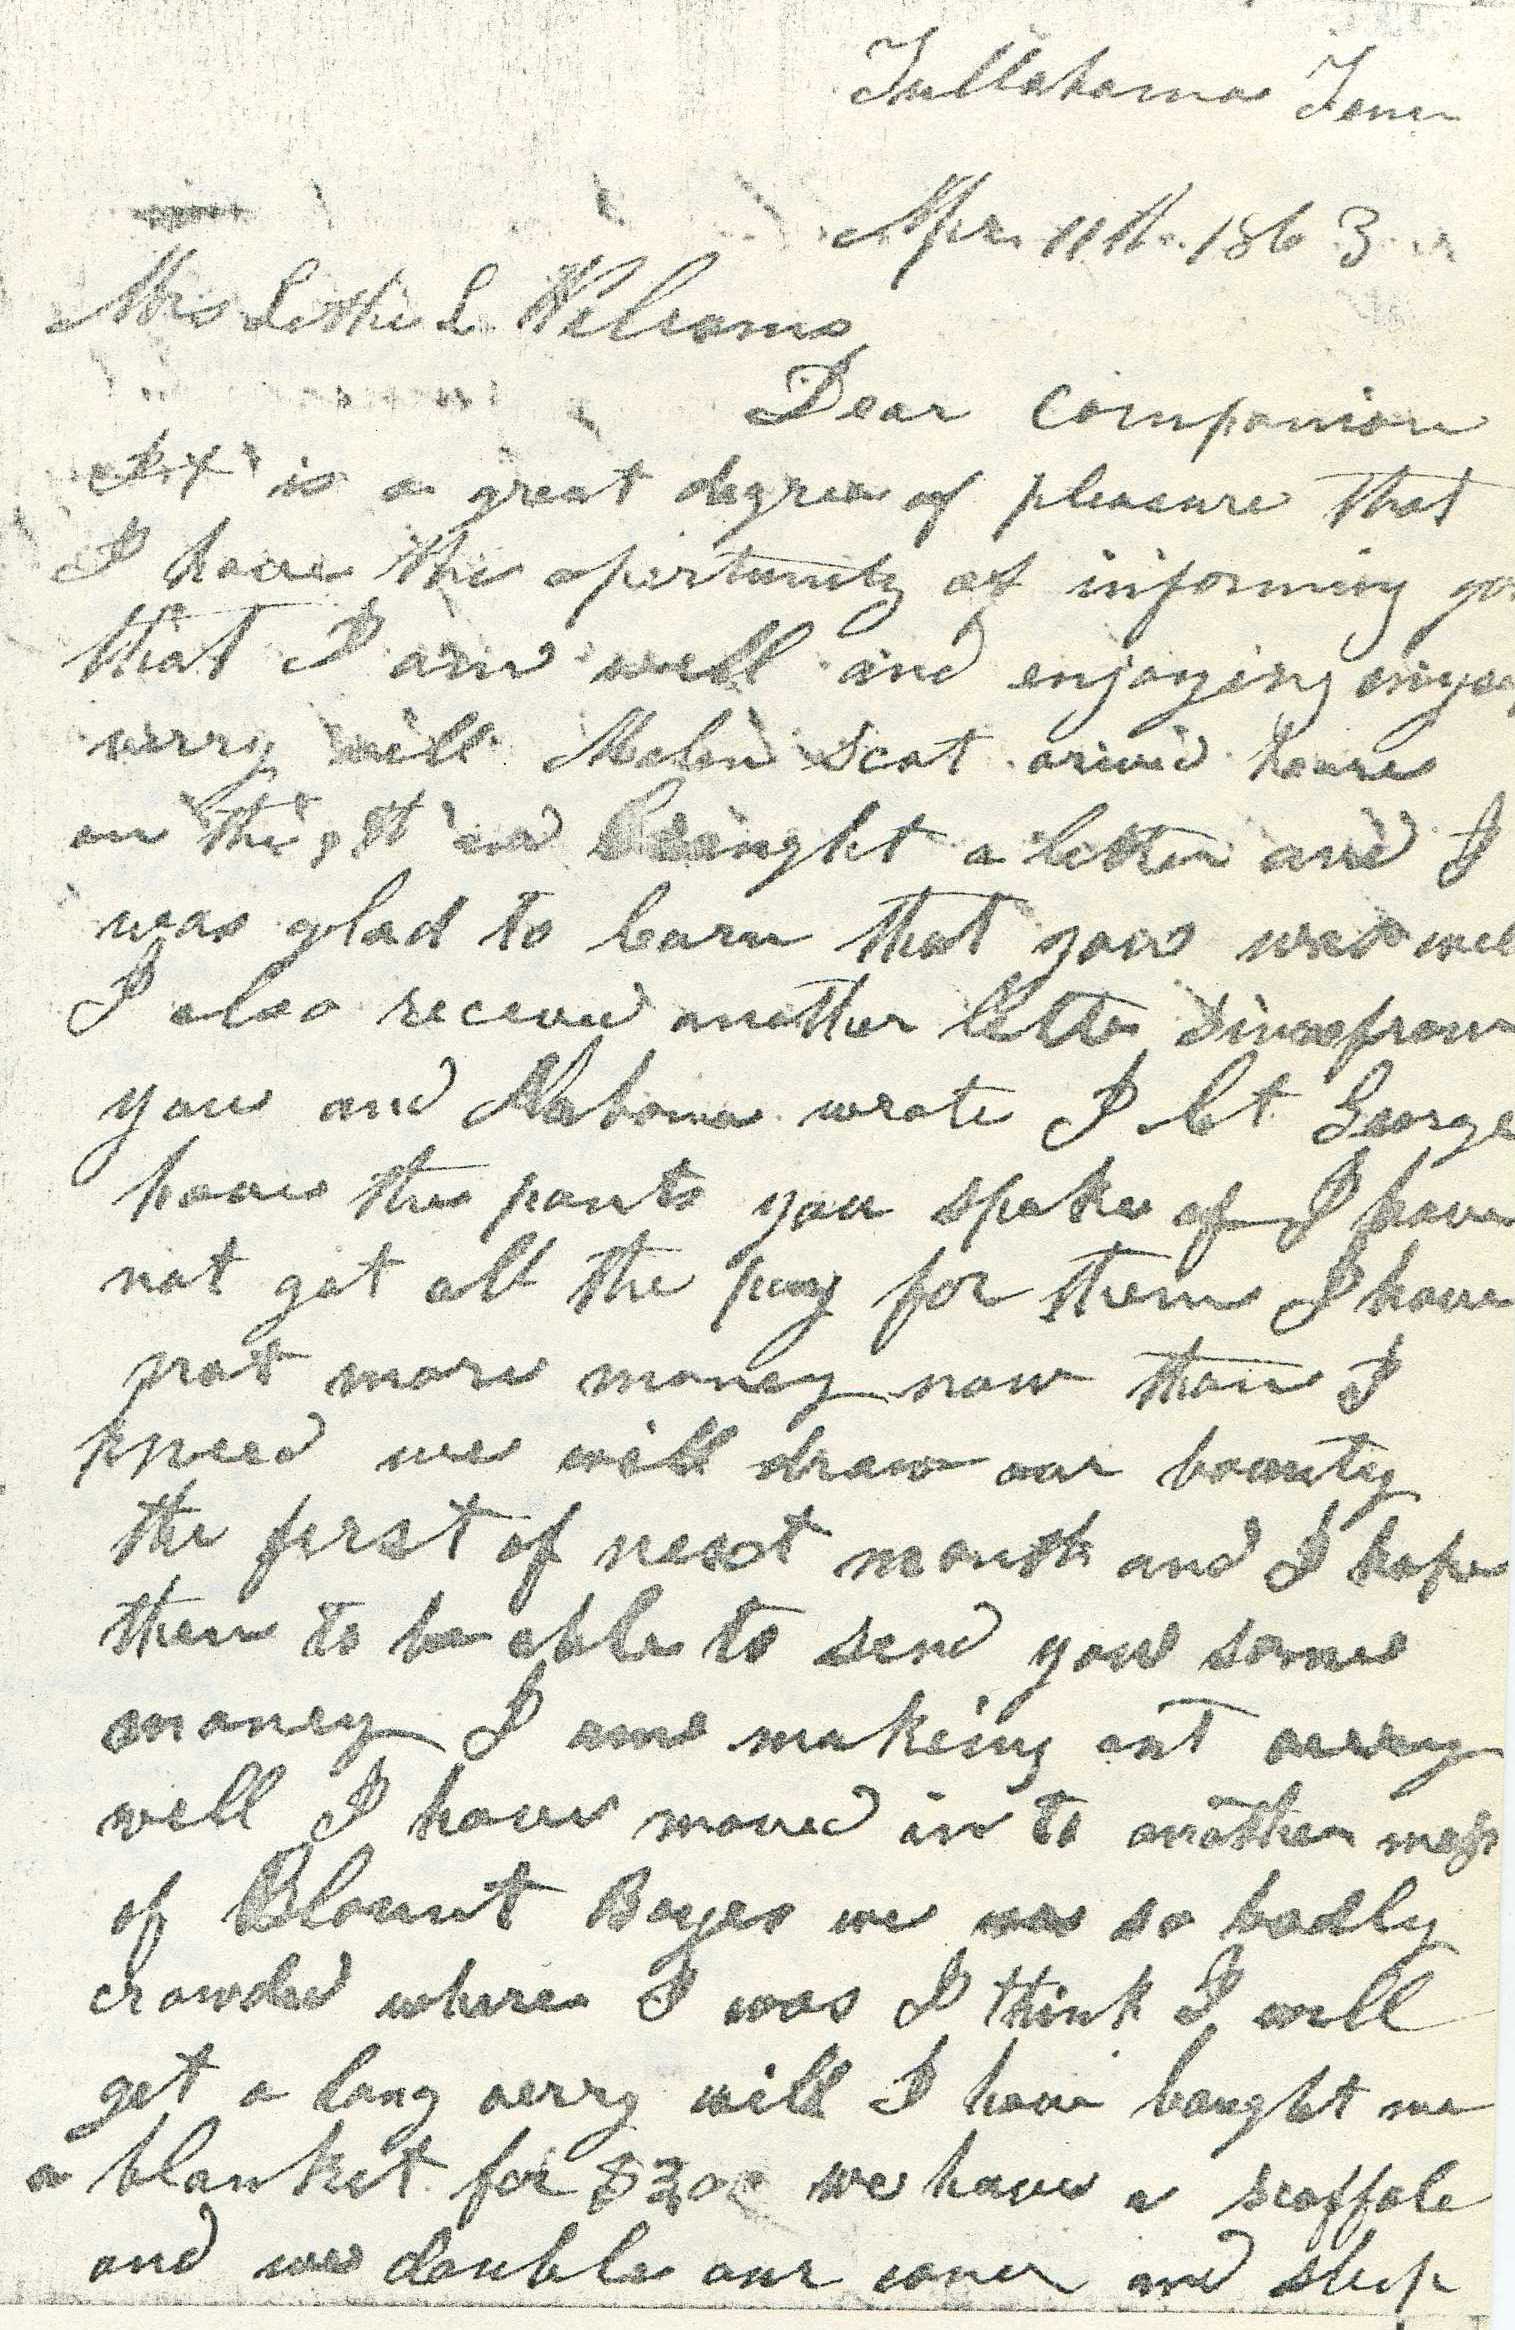 Tullahoma Tenn
Apr. 11th. 1863
Mrs Lethe L Weleams
Dear Companion
It is a great degree of pleasure that
I have the opertunity of informing you
that I am well and enjoying myself
verry well Scot arived heare
on the 8th and braught a letter and I
was glad to learn that you was well
I also received another letter from
you and wrote I let George
have the pants you spoke of I have
not got all the pay for them I have
not more money now than I
kneed we will draw our bounty
the first of next month and I hope
then to be able to send you some
money I am making out verry
well I have moved in to another mess
of Blount Boyes we was so badly
crowded where I was I think I will
get a long verry well I have bought me
a blanket for we have a scaffole
and we double our cover and sleep